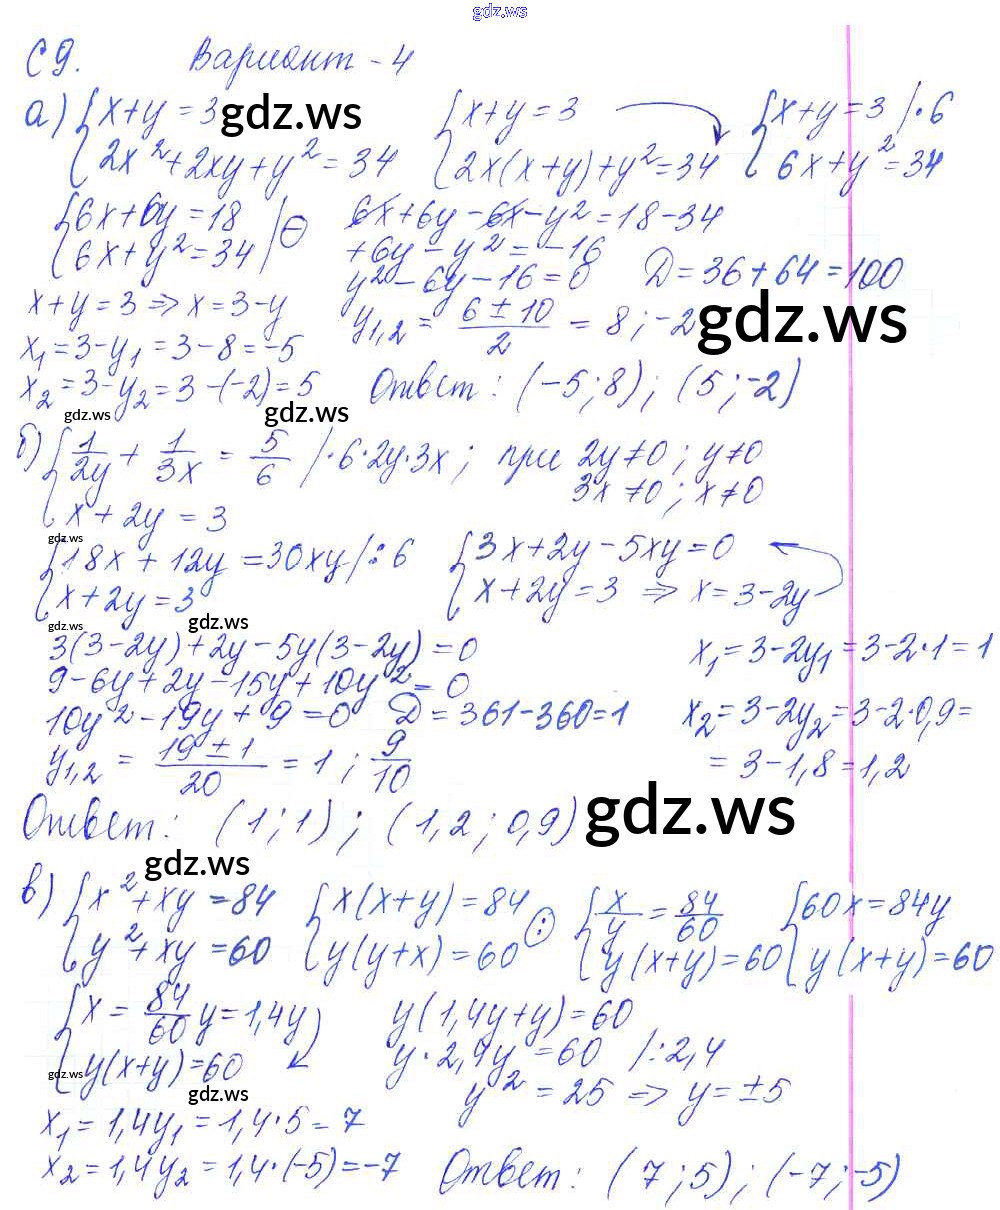 gdz.ws
С 9. Вариант - 4
а) { x+y = 3 gdz.ws { x+y = 3 { x+y = 3 /·6
{ 2x²+2xy+y² = 34 { 2x(x+y)+y² = 34 { 6x+y² = 34
{ 6x+6y = 18 / ⊖ 6x+6y-6x-y² = 18-34
{ 6x+y² = 34 / +6y-y² = -16
y²-6y-16 = 0 Д = 36+64 = 100
x+y = 3 => x = 3-y y1,2 = (6 ± 10)/2 = 8 ; -2 gdz.ws
x₁ = 3-y₁ = 3-8 = -5
x₂ = 3-y₂ = 3-(-2) = 5 Ответ: (-5; 8); (5; -2)
gdz.ws gdz.ws
б) { 1/2y + 1/3x = 5/6 /·6·2y·3x ; при 2y≠0 ; y≠0
3x≠0 ; x≠0
{ x+2y = 3
gdz.ws
{ 18x+12y = 30xy /:6 { 3x+2y-5xy = 0
{ x+2y = 3 { x+2y = 3 => x = 3-2y
gdz.ws gdz.ws
3(3-2y)+2y-5y(3-2y) = 0 x₁ = 3-2y₁ = 3-2·1 = 1
9-6y+2y-15y+10y² = 0
10y²-19y+9 = 0 Д = 361-360 = 1 x₂ = 3-2y₂ = 3-2·0,9 =
y1,2 = (19 ± 1)/20 = 1 ; 9/10 = 3-1,8 = 1,2
Ответ: (1; 1); (1,2; 0,9) gdz.ws
gdz.ws
в) { x²+xy = 84 { x(x+y) = 84 { x/y = 84/60 { 60x = 84y
{ y²+xy = 60 { y(y+x) = 60 : { y(x+y) = 60 { y(x+y) = 60
{ x = 84/60 y = 1,4y y(1,4y+y) = 60
{ y(x+y) = 60 y·2,4y = 60 /:2,4
gdz.ws gdz.ws y² = 25 => y = ±5
x₁ = 1,4y₁ = 1,4·5 = 7
x₂ = 1,4y₂ = 1,4·(-5) = -7 Ответ: (7; 5); (-7; -5)